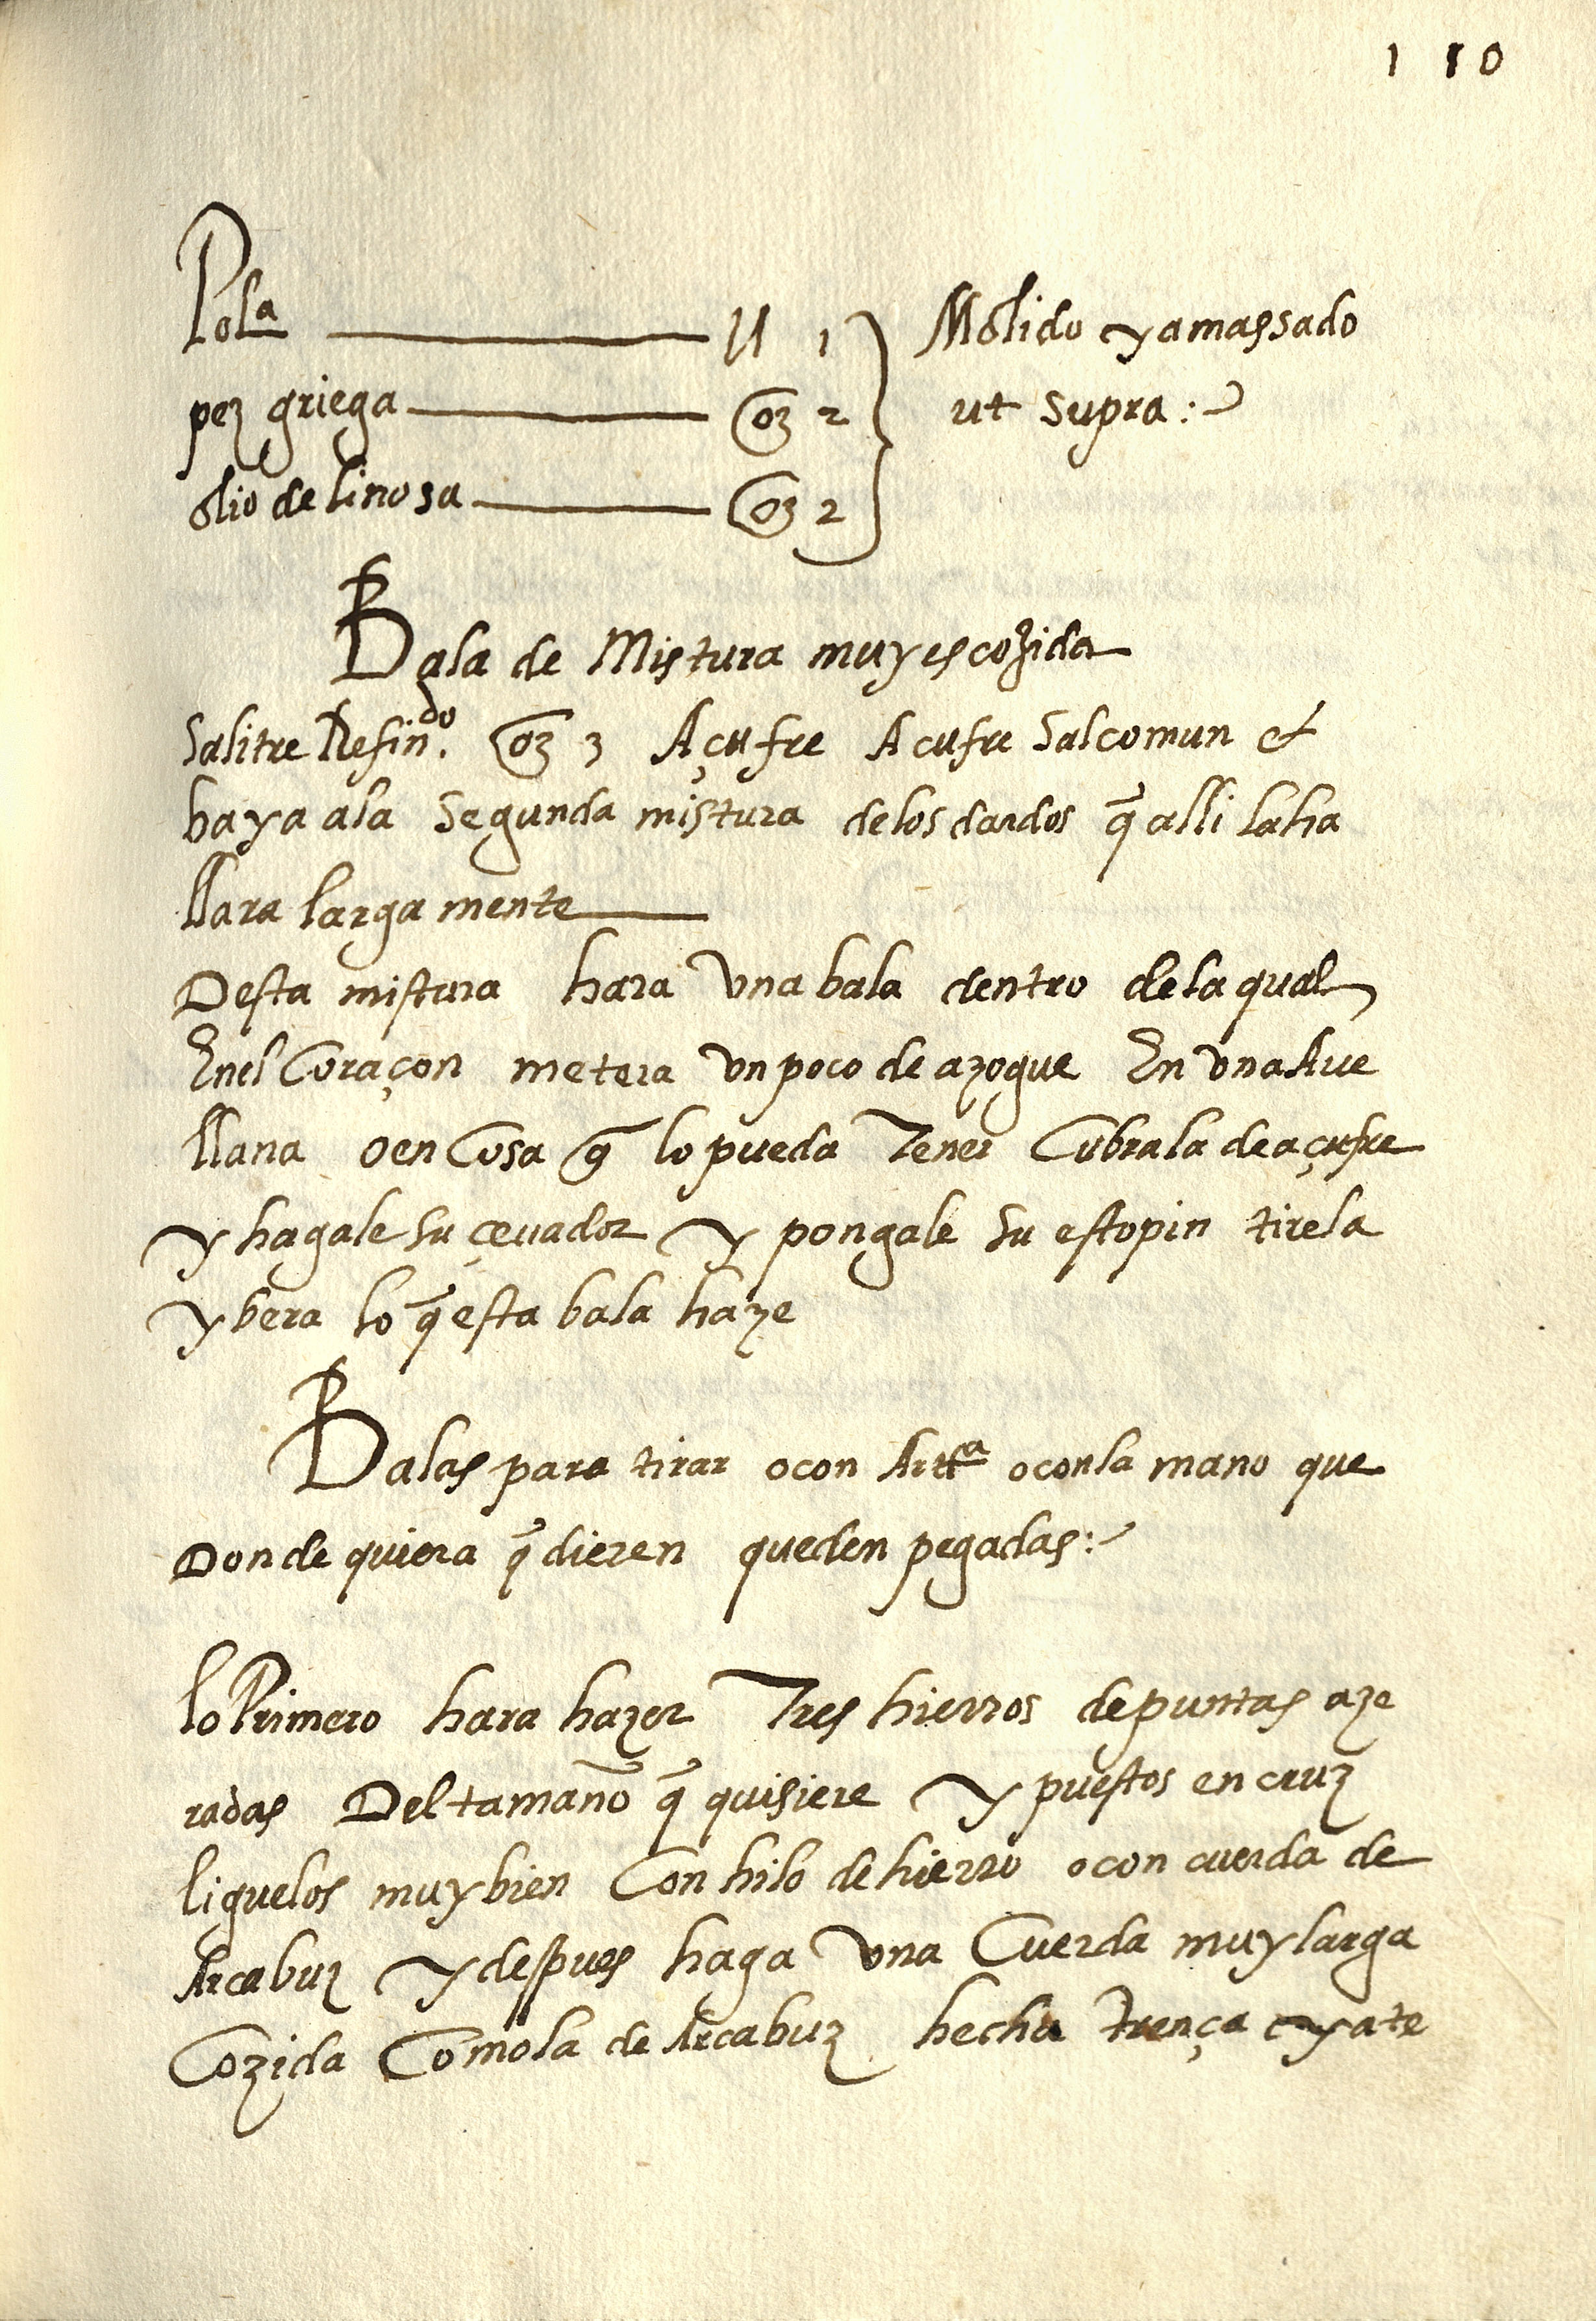 110
Pol.ª ——— ll 1 } Molido y amassado
pez griega ——— oz 2 } ut supra :~
olio de linosa ——— oz 2 }
Bala de Mistura muy escozida
Salitre Refin.do oz 3 Açufre Acufre Sal comun &
baya ala segunda mistura delos dardos q̃ alli laha
llara larga mente ———
Desta mistura hara vna bala dentro dela qual
Enel Coraçon metera vn poco de azogue En vna Aue
llana o en Cosa q̃ lo pueda Tener Cubrala de açufre
y hagale su çeuador y pongale su estopin tirela
y bera lo q̃ esta bala haze
Balas para tirar o con Artª o con la mano que
Donde quiera q̃ dieren queden pegadas :~
lo Primero hara hazer Tres hierros de puntas aze
radas Del tamaño q̃ quisiere y puestos en cruz
liguelos muy bien Con hilo de hierro o con cuerda de
Arcabuz y despues haga vna Cuerda muy larga
Cozida Como la de Arcabuz hecha trença y ate